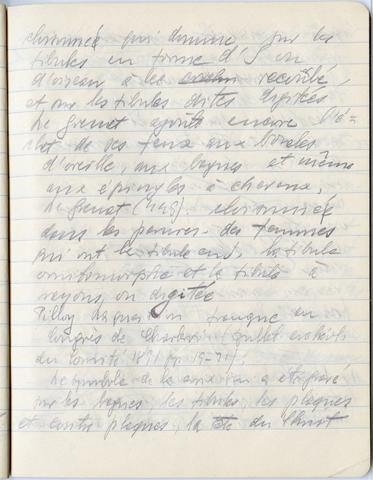 cloisonnée qui domine, sur les
fibules en forme d'S ou
d'oiseau à bec recourbé,
et sur les fibules dites digitées
Le grenat ajoute encore l'é-
clat de ses feux aux boucles
d'oreille, aux bagues et même
aux épingles à cheveux.
Le grenat (449) cloisonnée
dans les parures des femmes
qui ont la fibule en S, la fibule
ornithomorphe et la fibule à
rayons ou digitée
Pilloy en
Congrès de Charleroi (Bullet archéol.
du Comité 1891 pp 19-21).
Le symbole de la croix a été gravé
sur les bagues, les fibules, les plaques
et contre plaques, la tête du Christ